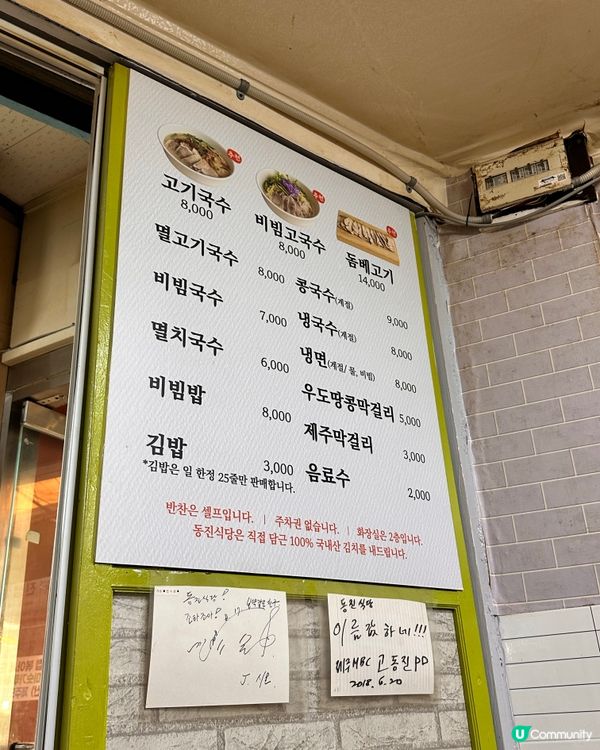 고기국수
8,000
비빔고국수
8,000
돔베고기
14,000
멸고기국수 8,000
비빔국수 7,000
멸치국수 6,000
비빔밥 8,000
김밥 3,000
*김밥은 일 한정 25줄만 판매합니다.
콩국수(계절) 9,000
냉국수(계절) 8,000
냉면(계절/ 물, 비빔) 8,000
우도땅콩막걸리 5,000
제주막걸리 3,000
음료수 2,000
반찬은 셀프입니다. | 주차권 없습니다. | 화장실은 2층입니다.
동진식당은 직접 담근 100% 국내산 김치를 내드립니다.
동진식당!
동진식당
이름값 하네!!!
제주MBC 고동진PD
2018.6.20
U Community